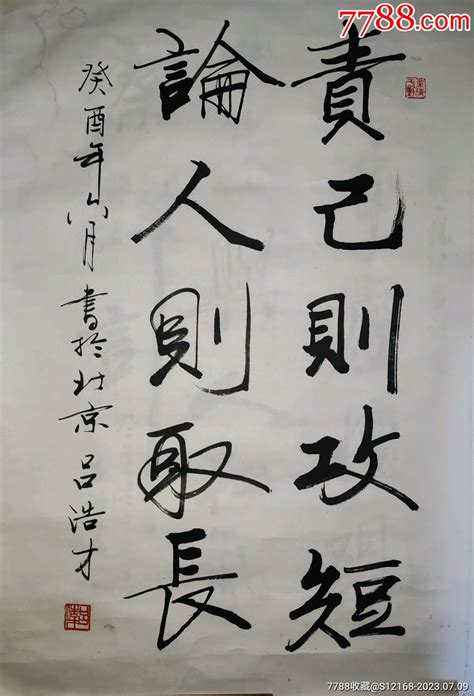 7788.com
責己則攻短
論人則取長
癸酉年八月書於北京吕浩才
7788收藏@S12168-2023.07.09